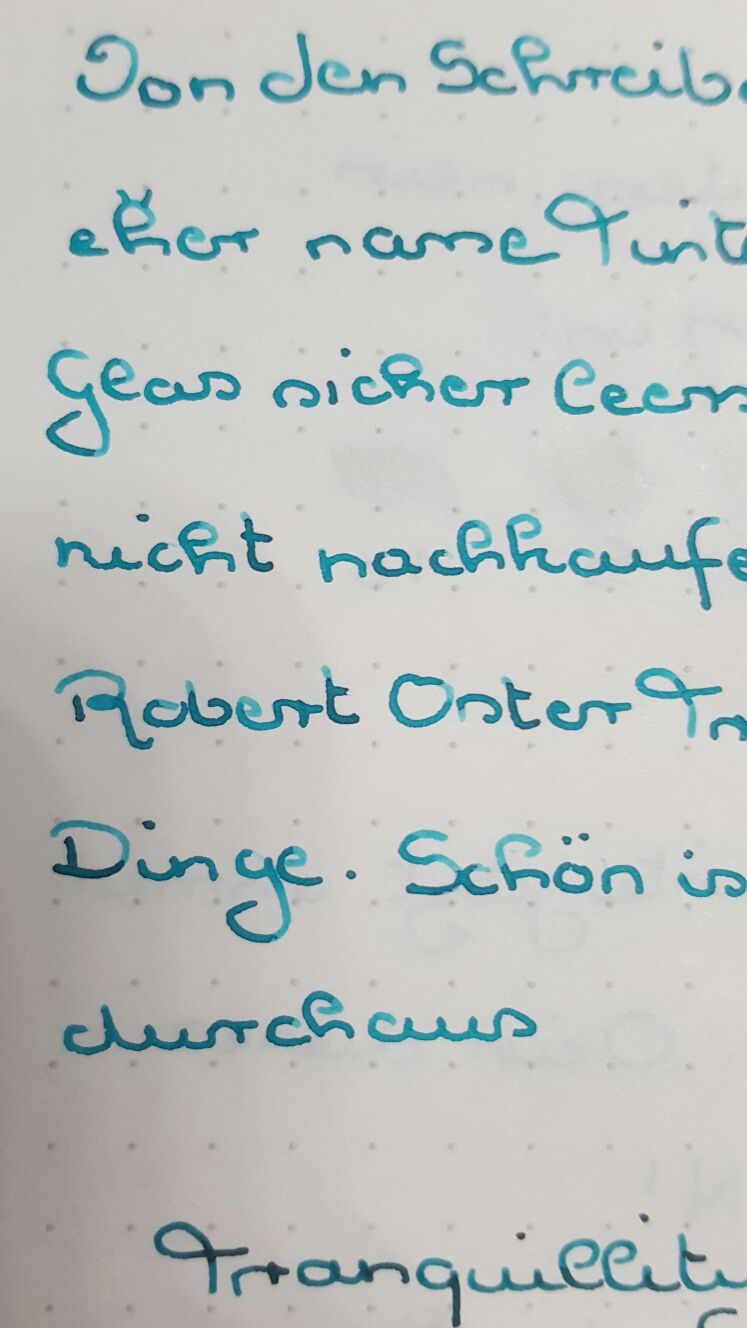 Von den Schreibe
eher nasse Tinte
Glas sicher leer
nicht nachkaufe
Robert Oster Tr
Dinge. Schön is
durchaus
Tranquillity